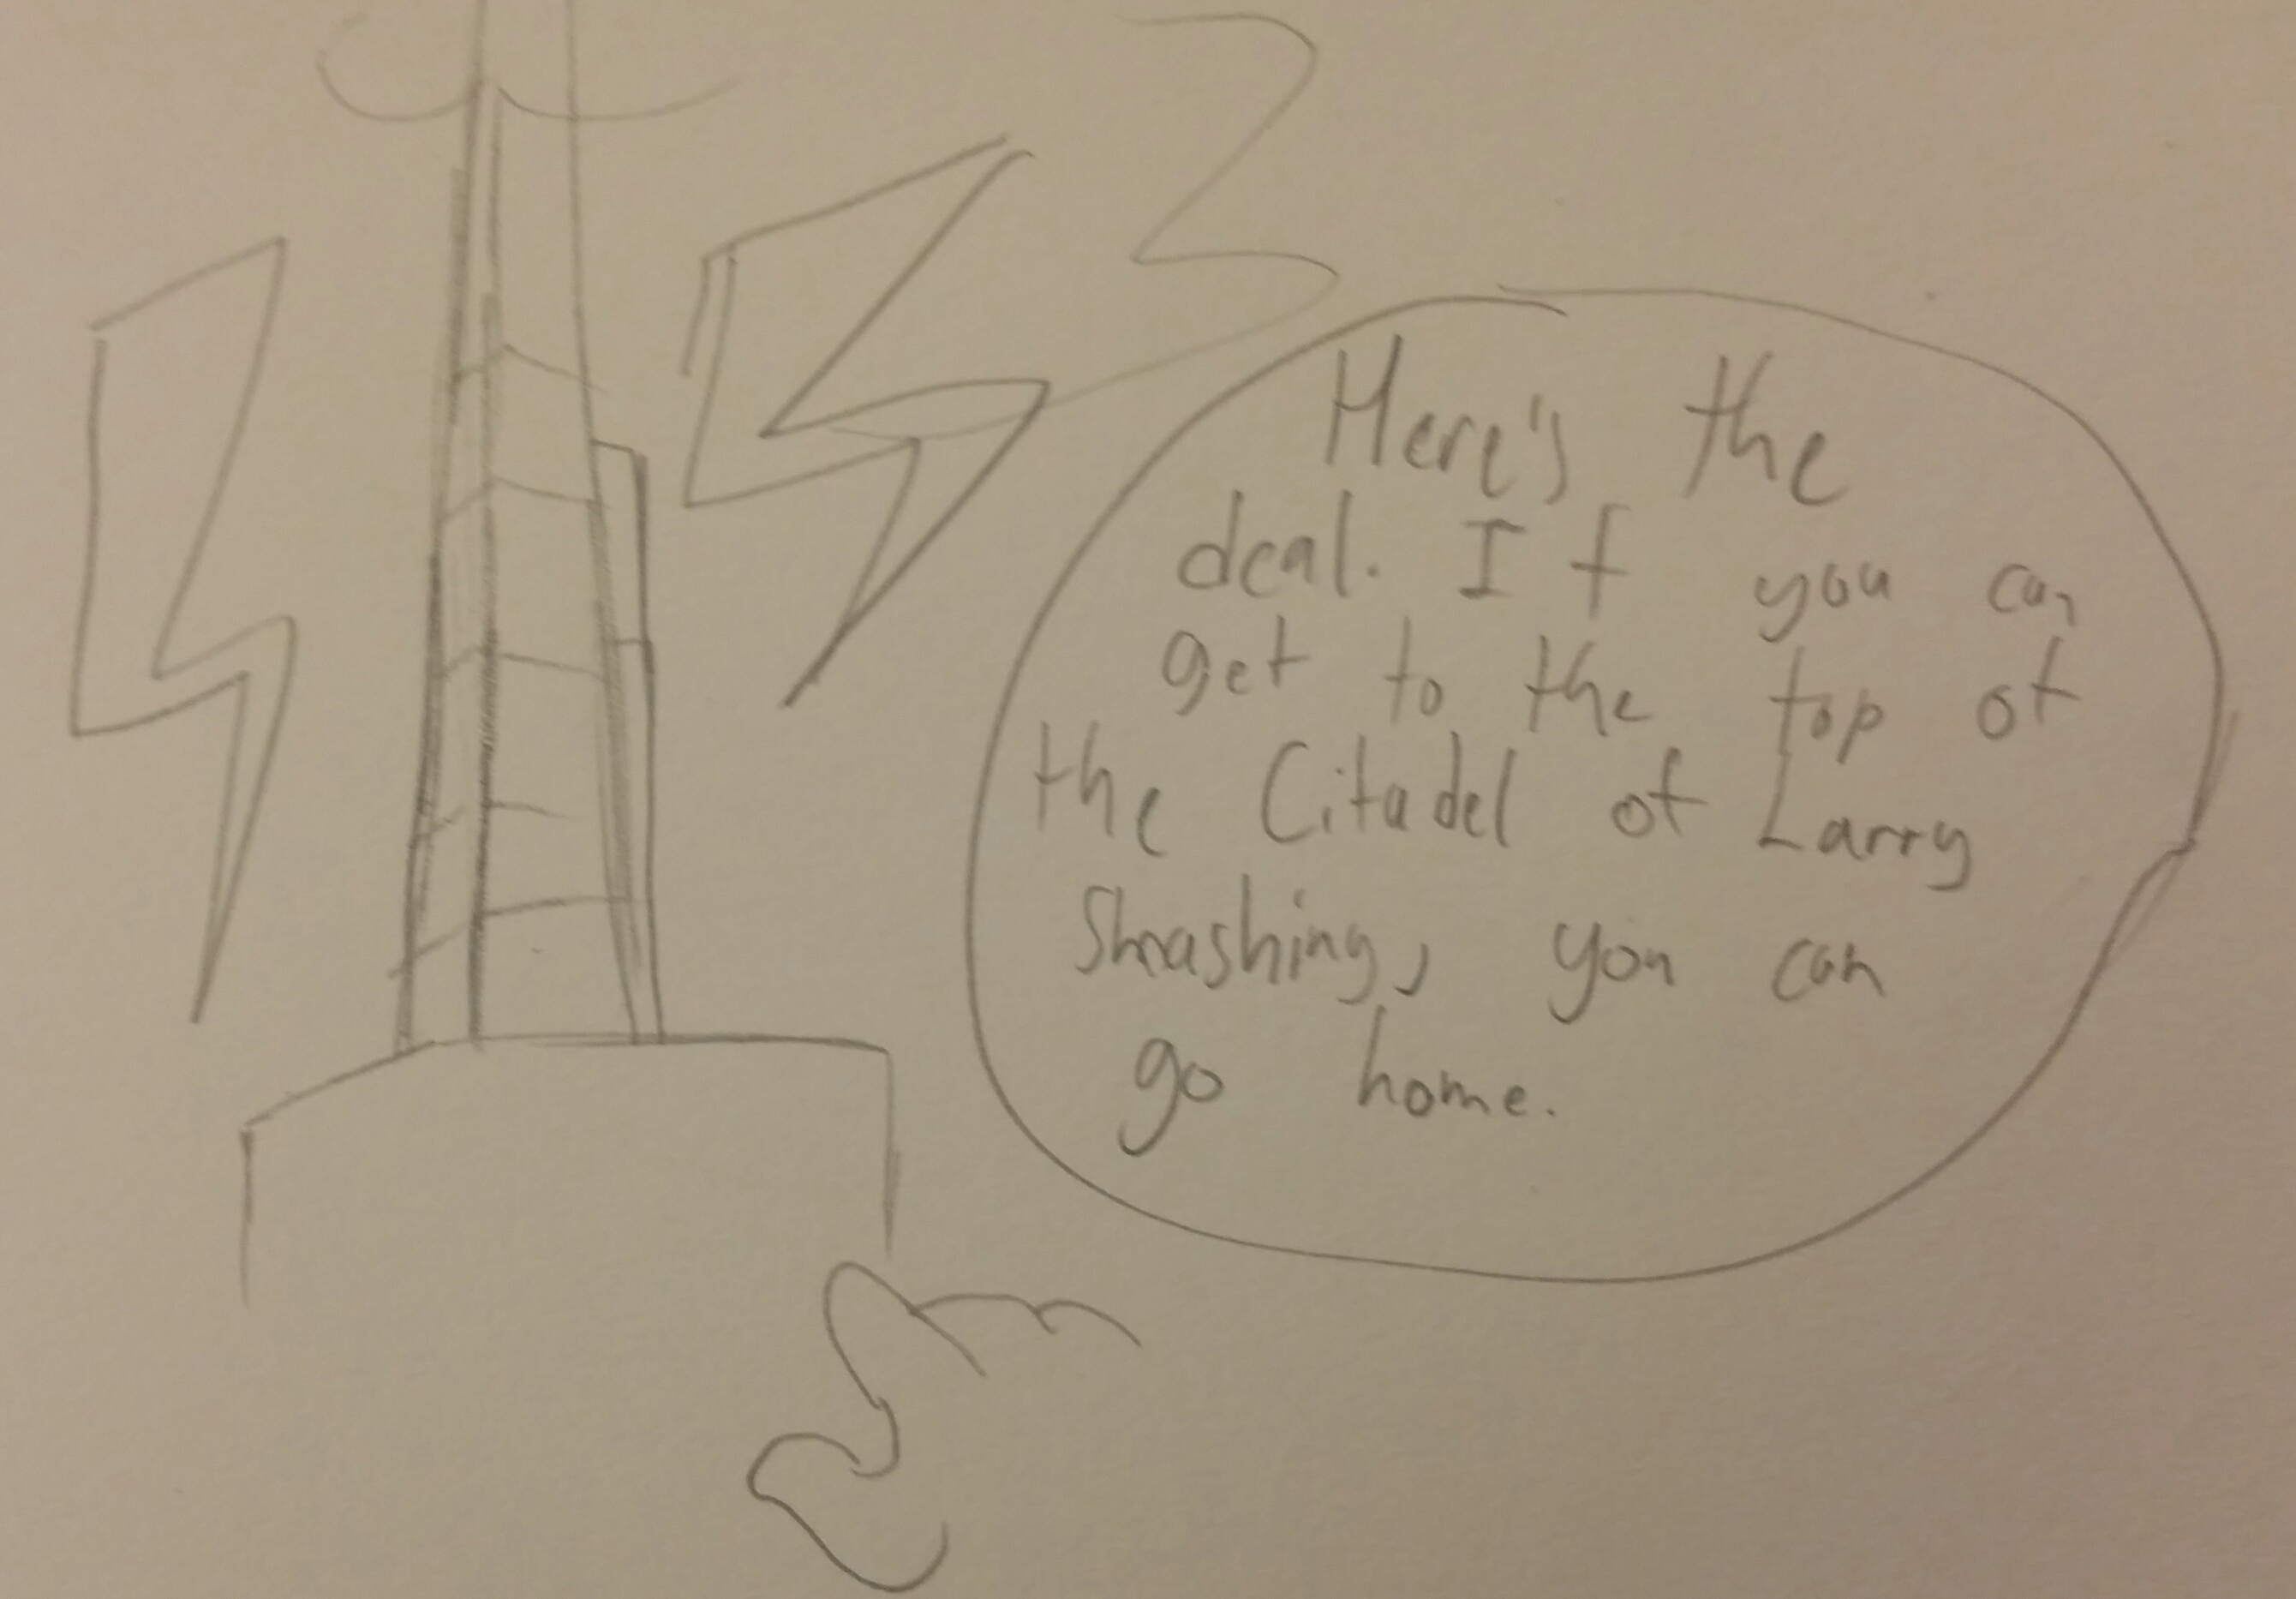 Here's the
deal. If you can
get to the top of
the Citadel of Larry
Smashing, you can
go home.